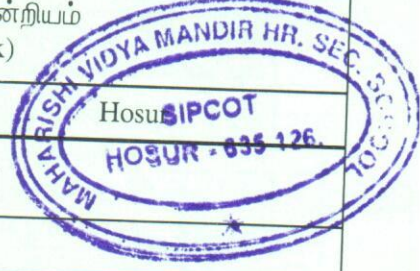 ன்றியம்
k)
MAHARISHI VIDYA MANDIR HR. SEC. SCHOOL
Hosur
SIPCOT
HOSUR - 635 126.